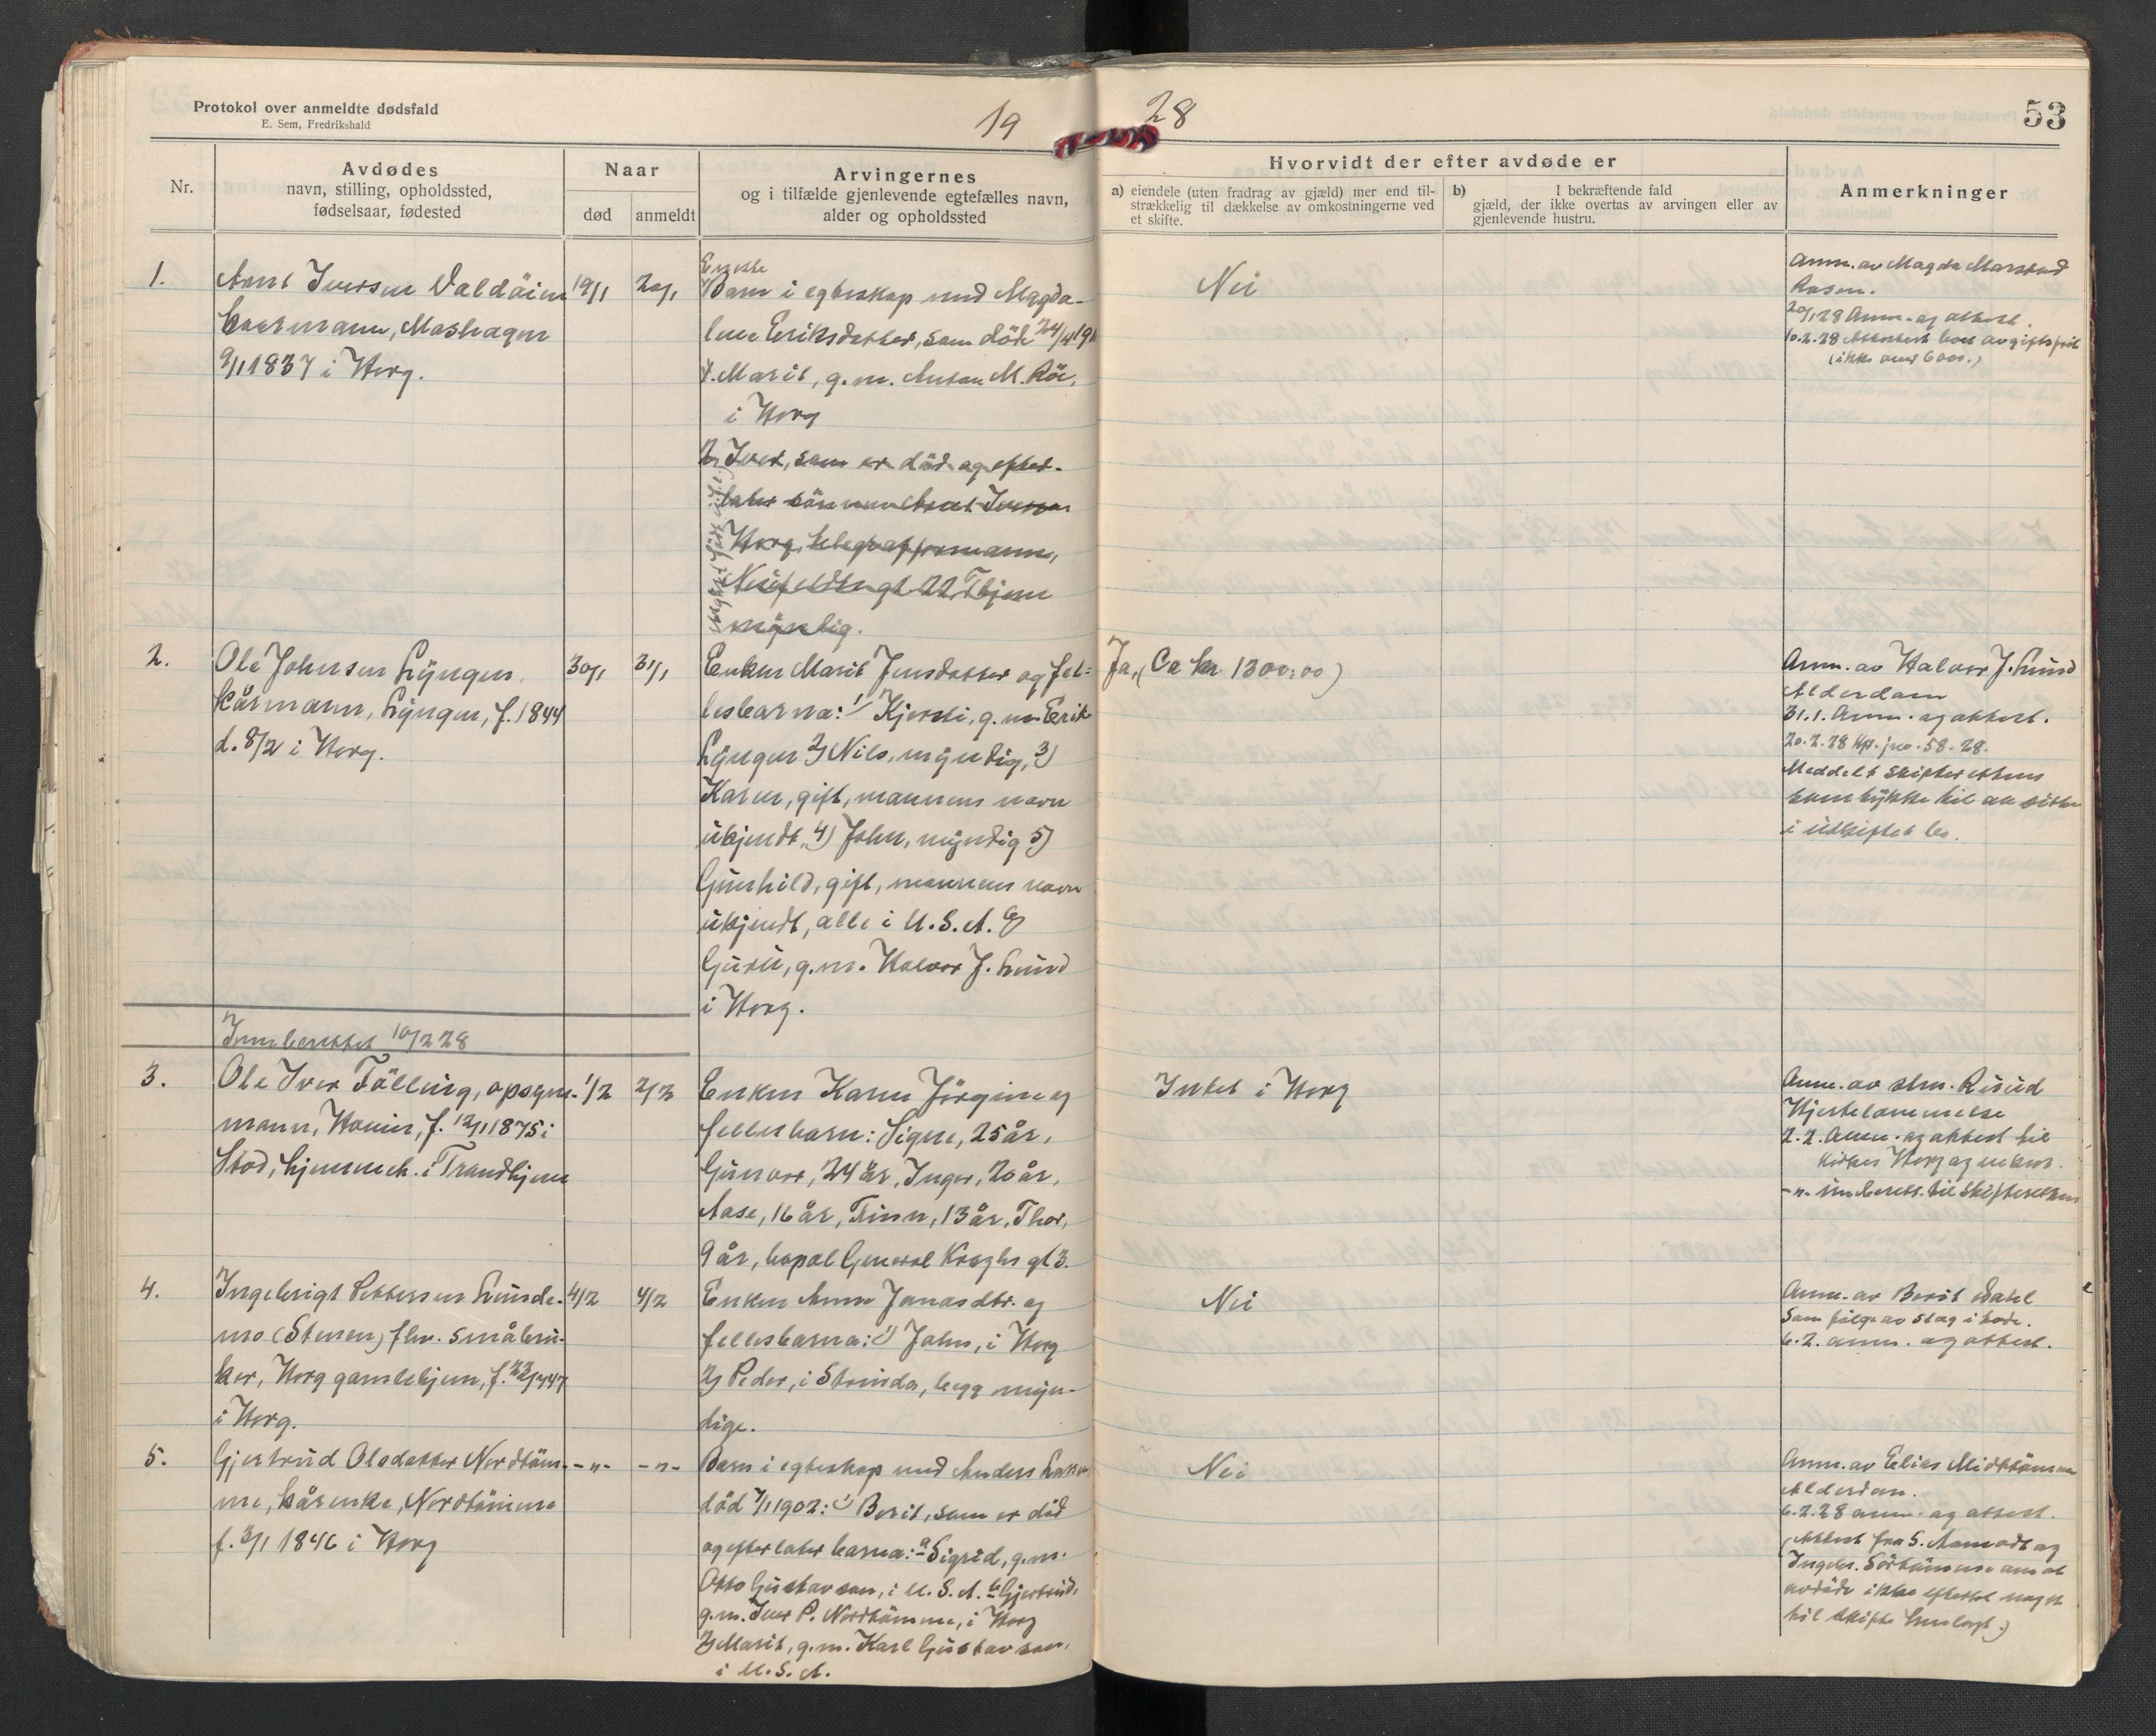 Protokol over anmeldte dødsfald
E. Sem, Fredrikshald
19 28
53
Nr.
Avdødes
navn, stilling, opholdssted,
fødselsaar, fødested
Naar
død
anmeldt
Arvingernes
og i tilfælde gjenlevende egtefælles navn,
alder og opholdssted
Hvorvidt der efter avdøde er
a) eiendele (uten fradrag av gjæld) mer end til-
strækkelig til dækkelse av omkostningerne ved
et skifte.
b) I bekræftende fald
gjæld, der ikke overtas av arvingen eller av
gjenlevende hustru.
Anmerkninger
1.
Arnt Iversen Valdöien
kaarmann,
9/1 1837 i Horg.
19/1
20/1
Eneste
Barn i egteskap med Magda-
lene Eriksdatter, som döde 24/4 19
Marit, g.m. Anton M. Röe,
i Horg
2) Iver, som er död og efter-
later sönnen Arnt Iversen
Horg, telegrafformann,
gt. 22, Thjem
myndig.
Nei
Anm. av Magda Marstad
Rosen.
20/1 28 Anm. og attest.
10.2.28 Attestert boet avgiftsfrit
(ikke over 600.)
2.
Ole Johnsen Lyngen,
kårmann, Lyngen, f. 1844
d. 8/2 i Horg.
30/1
31/1
Enken Marit Jensdatter og fel-
lesbarna: 1) Kjersti, g.m. Erik
Lyngen 2) Nils, myndig, 3)
Karen, gift, mannens navn
ukjendt, 4) John, myndig 5)
Gunhild, gift, mannens navn
ukjendt, alle i U.S.A. 6)
Guru, g.m. Halvor J. Lund
i Horg.
Ja, (Ca kr. 1300,00)
Anm. av Halvor J. Lund
Alderdom
31.1. Anm. og attest.
20.2.28 Kp. jno. 58-28.
Meddelt skifterettens
samtykke til at sitte
i uskiftet bo.
Innberettet 10/2 28
3.
Ole Iver Fölling, opsyns-
mann, Hovin, f. 12/1 1875 i
Stod, hjemmeh. i Trondhjem
1/2
2/2
Enken Karen Jörgine og
fellesbarn: Signe, 25 år,
Gunvor, 24 år, Inger, 20 år,
Aase, 16 år, Finn, 13 år, Thor,
9 år, bopæl General Kraghs gt 3.
Intet i Horg
Anm. av stm. Risud
Hjertelammelse
2.2. Anm. og attest til
kirken Horg og enken.
-"- innberett. til Skifteretten
4.
Ingebrigt Pettersen Lunde-
mo (Stenen) fhv. småbru-
ker, Horg gamlehjem, f. 1847
i Horg.
4/2
4/2
Enken Anne Jonasdtr. og
fellesbarna: 1) John, i Horg
2) Peder, i Strinda, begg myn-
dige.
Nei
Anm. av Berit Dahl
Som fölge av slag i hode.
6.2. anm. og attest.
5.
Gjertrud Olsdatter Nordtöm-
me, kårenke, Nordtömme
f. 3/1 1846 i Horg
-"-
-"-
Barn i egteskap med Anders Larsen
död 7/1 1902: 1) Berit, som er död
og efterlater barna: a Sigrid, g.m.
Otto Gustavson, i U.S.A. b Gjertrud,
g.m. Iver P. Nordtömme, i Horg
2) Marit, g.m. Karl Gustavson,
i U.S.A.
Nei
Anm. av Elias Midttömme
Alderdom.
6.2.28 anm. og attest.
(Attest fra S. Aamodt og
Ingebr. Sörtömme om at
avdöde ikke efterlot noget
til skifte fremlagt.)